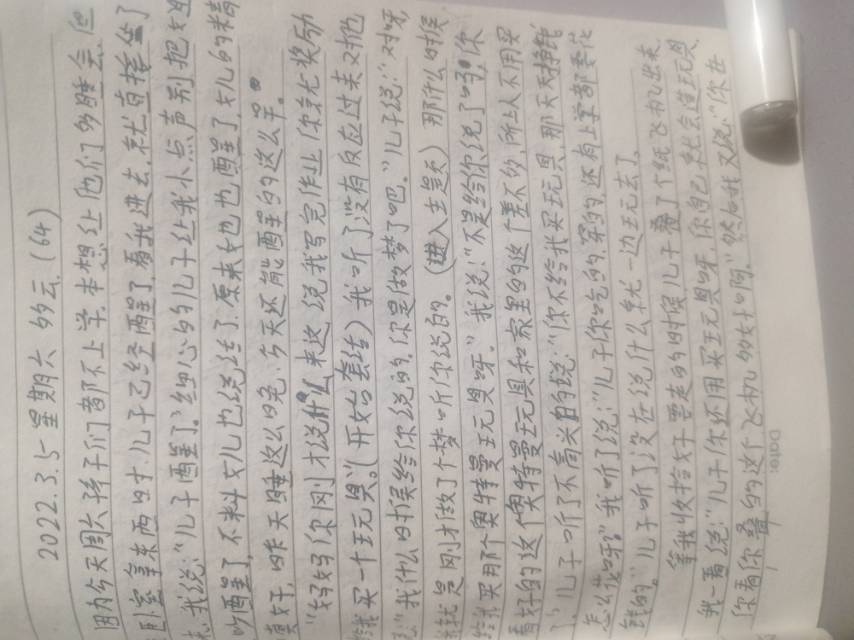 2022.3.5 星期六 多云 (64)
因为今天周六孩子们都不上学.本想让他们多睡会.
室拿东西时.儿子已经醒了.看我进去.就直接坐了
我说:"儿子醒了."细心的儿子让我小点声别把
吵醒了,不料女儿也说话了.原来她也醒了.女儿的精
真好,昨天睡这么晚.今天还能醒的这么早。
"妈妈你刚才说什么来这说我写完作业你就奖励
我买一个玩具"(开始套话)我听了没有反应过来对他
"我什么时候给你说的,你是做梦了吧."儿子说:"对呀,
就是刚才做了个梦听你说的。(进入主题)那什么时候
给我买那个奥特曼玩具呀."我说:"不是给你说了吗,你
看好的这个奥特曼玩具和家里的这个差不多,所以不用买
儿子听了不高兴的说:"你不给我买玩具,那天天挣钱
怎么花呀?"我听了说:"儿子你吃的,穿的,还有上学都要花
钱的."儿子听了没在说什么就一边玩去了.
等我收拾好要走的时候儿子叠了个纸飞机出来
我一看说:"儿子你还用买玩具呀,你自己就会造玩具,
你看你叠的这个飞机多好啊."然后我又说:"你在
Date: